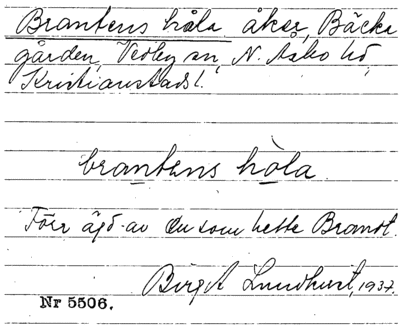 Brantens håla åker, Bäcka
gården, Vedby sn, N. Åsbo hd,
Kristianstads l.
brantens hòla.
Förr ägd av en som hette Brandt.
Birgit Lundhurst, 1937.
Nr 5506.